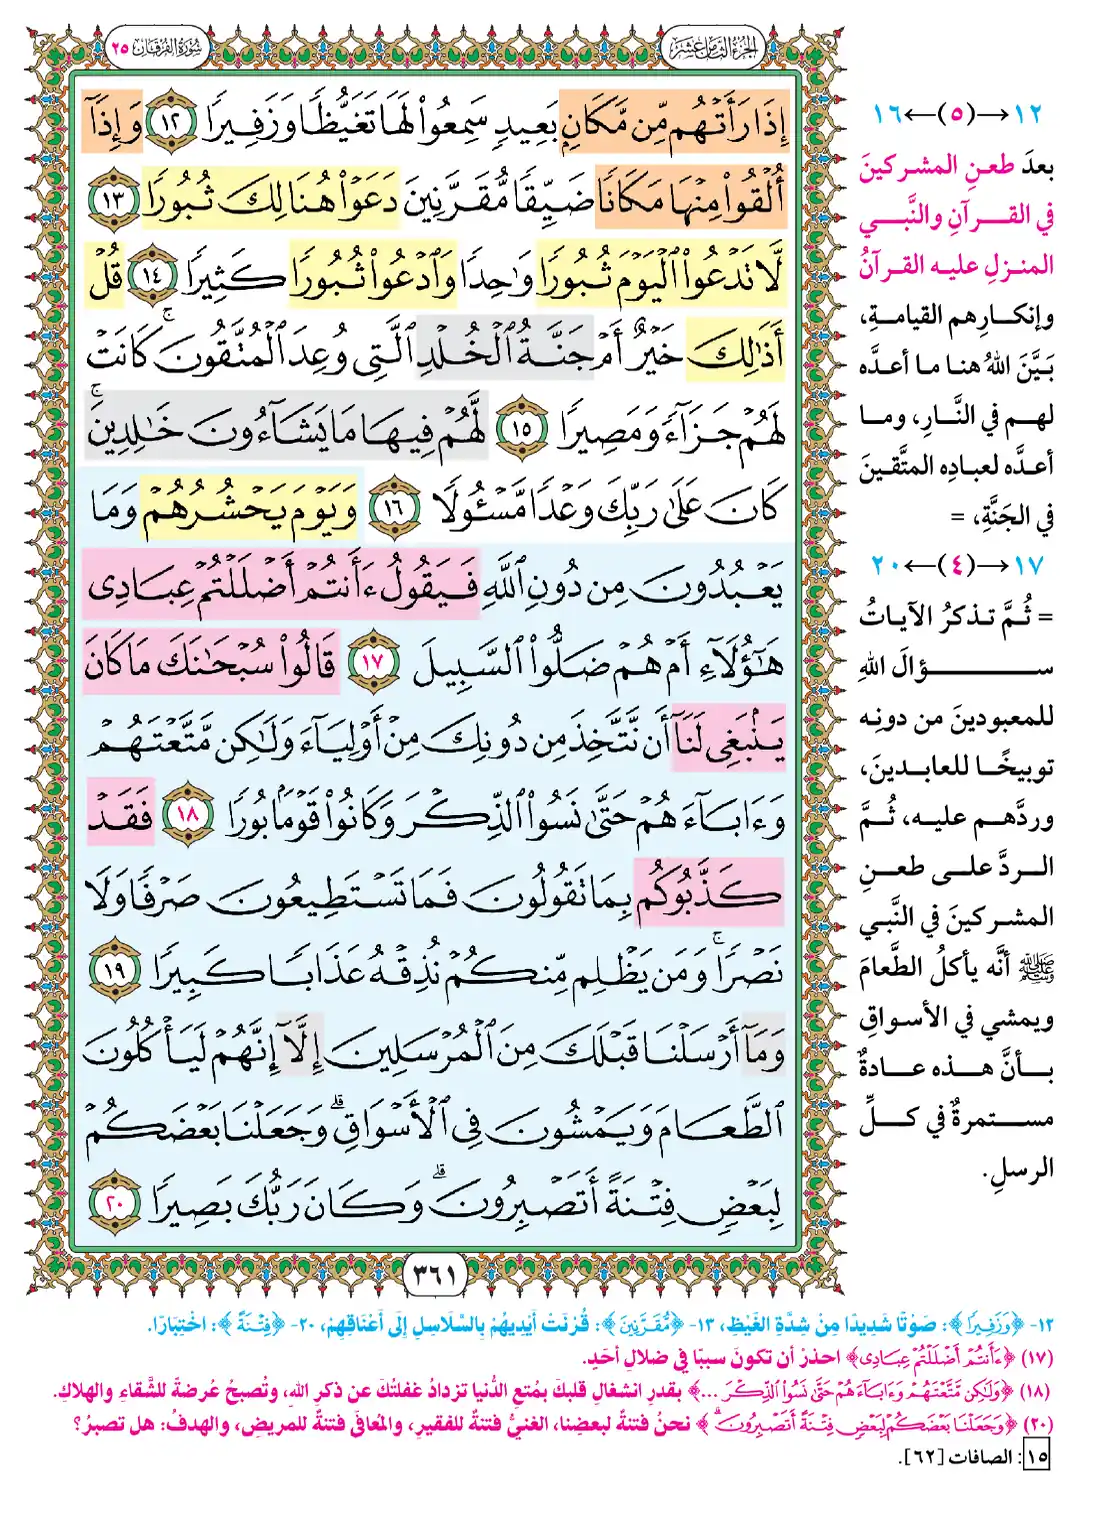 الجزء الثامن عشر
سورة الفرقان ٢٥
إِذَا رَأَتْهُم مِّن مَّكَانٍ بَعِيدٍ سَمِعُوا۟ لَهَا تَغَيُّظًا وَزَفِيرًا ١٢ وَإِذَآ
أُلْقُوا۟ مِنْهَا مَكَانًا ضَيِّقًا مُّقَرَّنِينَ دَعَوْا۟ هُنَالِكَ ثُبُورًا ١٣
لَّا تَدْعُوا۟ ٱلْيَوْمَ ثُبُورًا وَٰحِدًا وَٱدْعُوا۟ ثُبُورًا كَثِيرًا ١٤ قُلْ
أَذَٰلِكَ خَيْرٌ أَمْ جَنَّةُ ٱلْخُلْدِ ٱلَّتِى وُعِدَ ٱلْمُتَّقُونَ ۚ كَانَتْ
لَهُمْ جَزَآءً وَمَصِيرًا ١٥ لَّهُمْ فِيهَا مَا يَشَآءُونَ خَٰلِدِينَ ۚ
كَانَ عَلَىٰ رَبِّكَ وَعْدًا مَّسْـُٔولًا ١٦ وَيَوْمَ يَحْشُرُهُمْ وَمَا
يَعْبُدُونَ مِن دُونِ ٱللَّهِ فَيَقُولُ ءَأَنتُمْ أَضْلَلْتُمْ عِبَادِى
هَٰٓؤُلَآءِ أَمْ هُمْ ضَلُّوا۟ ٱلسَّبِيلَ ١٧ قَالُوا۟ سُبْحَٰنَكَ مَا كَانَ
يَنۢبَغِى لَنَآ أَن نَّتَّخِذَ مِن دُونِكَ مِنْ أَوْلِيَآءَ وَلَٰكِن مَّتَّعْتَهُمْ
وَءَابَآءَهُمْ حَتَّىٰ نَسُوا۟ ٱلذِّكْرَ وَكَانُوا۟ قَوْمًۢا بُورًا ١٨ فَقَدْ
كَذَّبُوكُم بِمَا تَقُولُونَ فَمَا تَسْتَطِيعُونَ صَرْفًا وَلَا
نَصْرًا ۚ وَمَن يَظْلِم مِّنكُمْ نُذِقْهُ عَذَابًا كَبِيرًا ١٩
وَمَآ أَرْسَلْنَا قَبْلَكَ مِنَ ٱلْمُرْسَلِينَ إِلَّآ إِنَّهُمْ لَيَأْكُلُونَ
ٱلطَّعَامَ وَيَمْشُونَ فِى ٱلْأَسْوَاقِ ۗ وَجَعَلْنَا بَعْضَكُمْ
لِبَعْضٍ فِتْنَةً أَتَصْبِرُونَ ۗ وَكَانَ رَبُّكَ بَصِيرًا ٢٠
٣٦١
١٢→(٥)←١٦
بعدَ طعنِ المشركينَ
في القرآنِ والنَّبي
المنزلِ عليه القرآنُ
وإنكارِهم القيامةِ،
بَيَّنَ اللهُ هنا ما أعدَّه
لهم في النَّارِ، وما
أعدَّه لعبادِه المتَّقينَ
في الجَنَّةِ، =
١٧→(٤)←٢٠
= ثُمَّ تذكرُ الآياتُ
سؤالَ اللهِ
للمعبودينَ من دونِه
توبيخًا للعابدينَ،
وردَّهم عليه، ثُمَّ
الردَّ على طعنِ
المشركينَ في النَّبي
ﷺ أنَّه يأكلُ الطَّعامَ
ويمشي في الأسواقِ
بأنَّ هذه عادةٌ
مستمرةٌ في كلِّ
الرسلِ.
١٢- ﴿وَزَفِيرًا﴾: صَوْتًا شَدِيدًا مِنْ شِدَّةِ الغَيْظِ، ١٣- ﴿مُّقَرَّنِينَ﴾: قُرِنَتْ أَيْدِيهُمْ بِالسَّلَاسِلِ إِلَى أَعْنَاقِهِمْ، ٢٠- ﴿فِتْنَةً﴾: اخْتِبَارًا.
(١٧) ﴿ءَأَنتُمْ أَضْلَلْتُمْ عِبَادِى﴾ احذرْ أن تكونَ سببًا في ضلالِ أحَدٍ.
(١٨) ﴿وَلَٰكِن مَّتَّعْتَهُمْ وَءَابَآءَهُمْ حَتَّىٰ نَسُوا۟ ٱلذِّكْرَ ...﴾ بقدرِ انشغالِ قلبِكَ بمُتعِ الدُّنيا تزدادُ غفلتُكَ عن ذكرِ اللهِ، وتُصبحُ عُرضةً للشَّقاءِ والهلاكِ.
(٢٠) ﴿وَجَعَلْنَا بَعْضَكُمْ لِبَعْضٍ فِتْنَةً أَتَصْبِرُونَ ۗ﴾ نحنُ فتنةٌ لبعضِنا، الغنيُّ فتنةٌ للفقيرِ، والمُعافَى فتنةٌ للمريضِ، والهدفُ: هل تصبرُ؟
١٥: الصافات [٦٢].